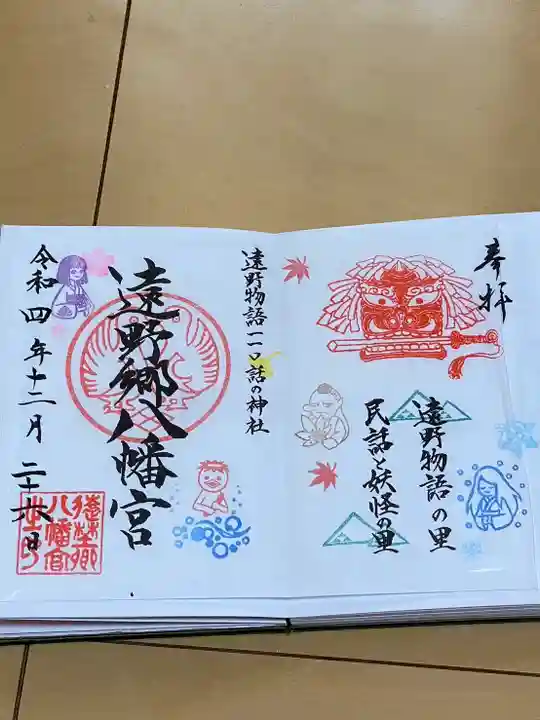 奉拝
遠野物語の里
民話と妖怪の里
遠野物語一一〇話の神社
遠野郷八幡宮
令和四年十二月二十六日